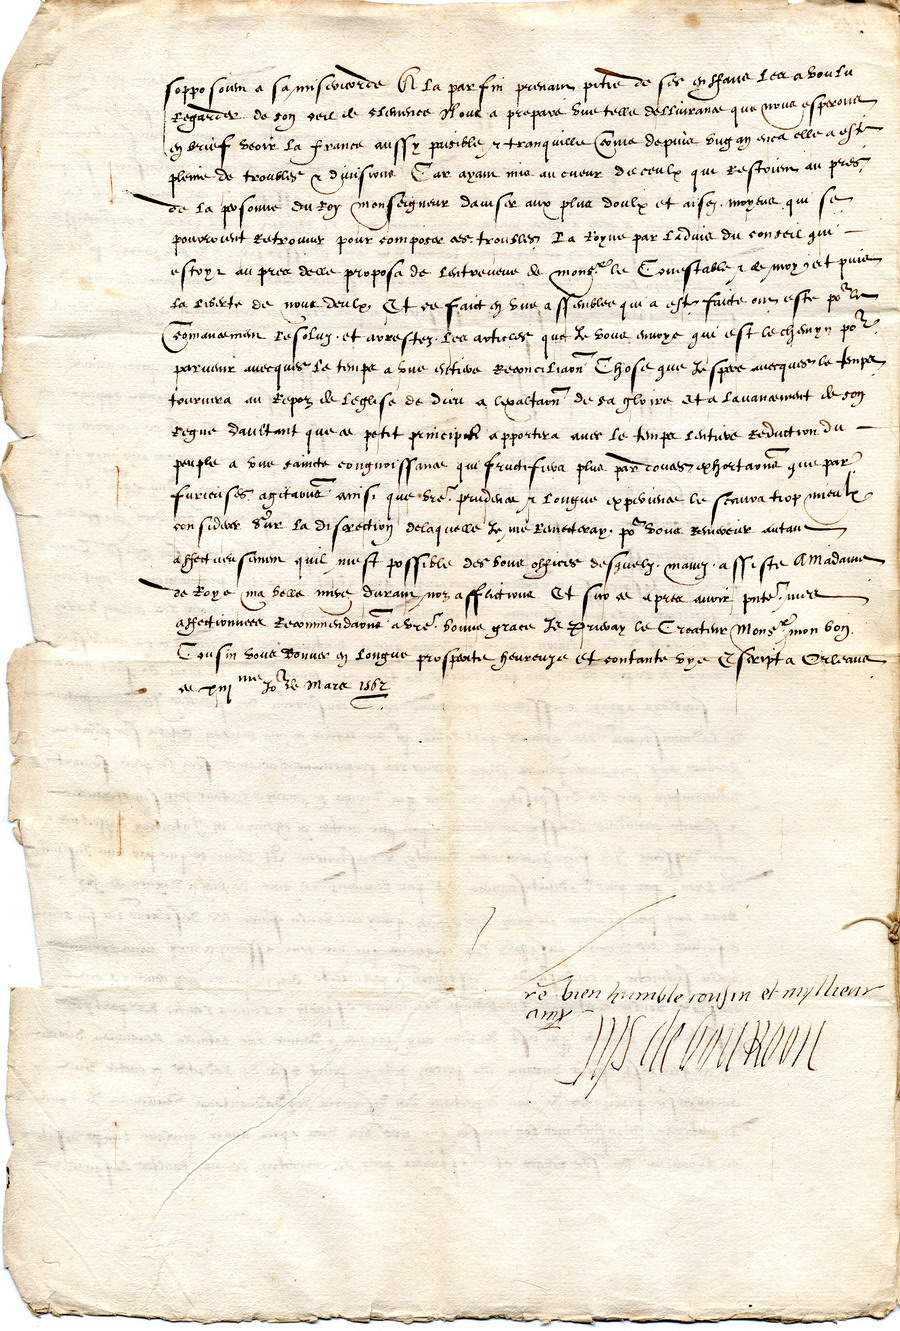 sopposoient a sa misericorde A la par fin prenant pitié de ses enfans Les a voulu
Regarder de son oeil de clemence Nous a preparé une telle dellivrance que nous esperons
en brief veoir la france aussy paisible & tranquille come depuis ung an enca elle a esté
pleine de troubles & divisions Car ayant mis au cueur de ceulx que Restoient au pres
de la personne du Roy monseigneur dadviser aux plus doulx et aisez moyens qui se
pouvoient Retrouver pour composer ces troubles La Royne par ladvis du conseil qui
estoyt au pres delle proposa de lentreveue de monsr le Connestable & de moy et puis
la liberté de nous deulx Et ce faict en une assemblee qui a esté faicte ont esté por le
Comancement Resoluz et arrestez les articles que Je vous envoye qui est le chemyn por
parvenir avecques le temps a une entiere Reconciliaon Chose que Jespere avecques le temps
tournera au Repoz de leglise de dieu a lexaltaon de sa gloire et a lavancement de son
Regne daultant que ce petit principe apportera avec le temps lentiere Reduction du
peuple a une saincte congnoissance qui fructifira plus par doulces exhortaons que par
furieuses agitaons ainsi que vre prudence & longue experience le scaura trop mieulx
considerer Sur la discretion de laquelle Je me Remectray por vous Remercier autant
affectueusement quil mest possible des bons offices desquelz mavez assisté A Madame
de Roye ma belle mere durant noz afflictions Et sur ce apres avoir pnté mes
affectionnees Recommendaons a vre bonne grace Je Prieray le Createur Monsr mon bon
Cousin vous donner en longue prosperité heureuze et contante vye Escript a Orleans
ce xiii me Jor de Mars 1562
re bien humble cousin et mylleur
amy
Loys de bourbon